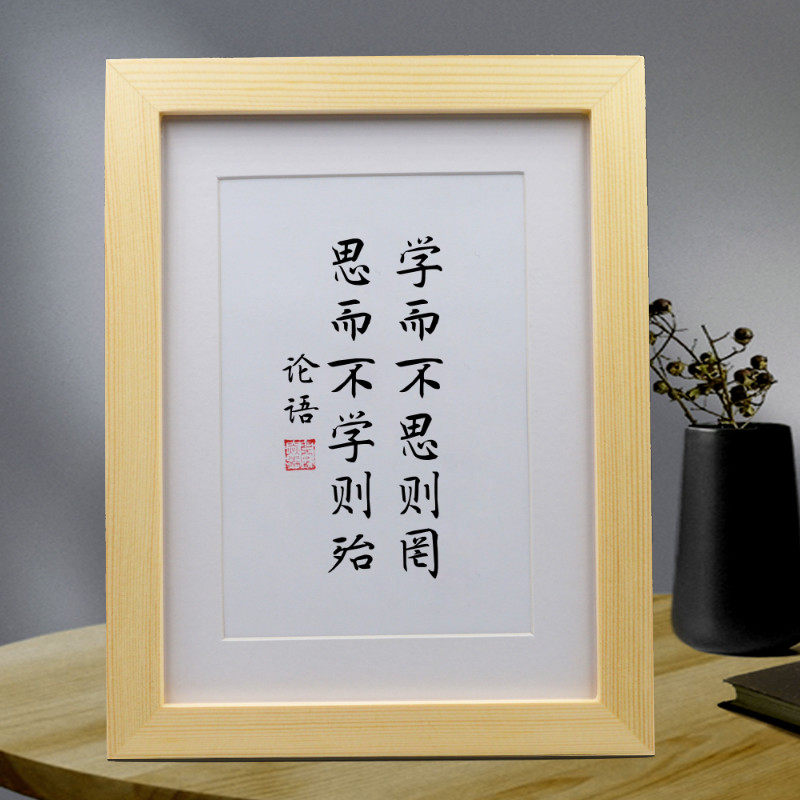 学而不思则罔
思而不学则殆
论语